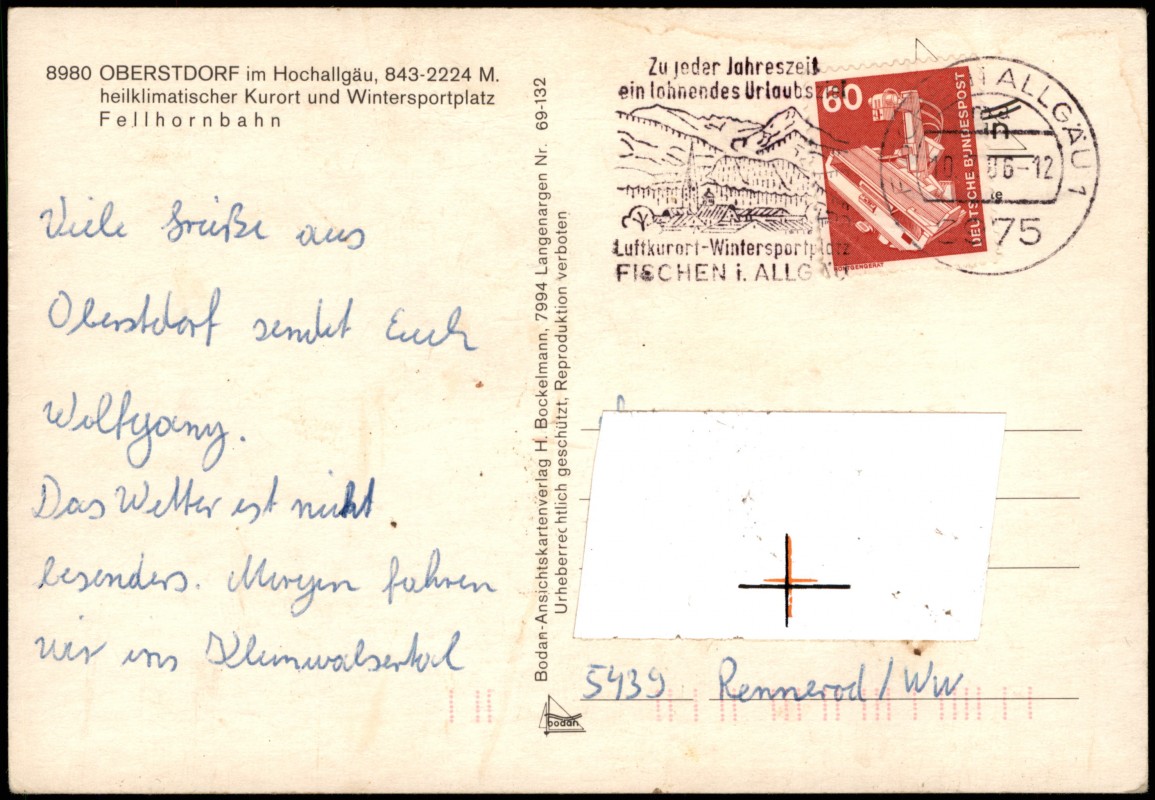 8980 OBERSTDORF im Hochallgäu, 843-2224 M.
heilklimatischer Kurort und Wintersportplatz
Fellhornbahn
Viele Grüße aus
Oberstdorf sendet Euch
Wolfgang.
Das Wetter ist nicht
besonders. Morgen fahren
wir ins Kleinwalsertal
Bodan-Ansichtskartenverlag H. Bockelmann, 7994 Langenargen Nr. 69-132
Urheberrechtlich geschützt, Reproduktion verboten
bodan
Zu jeder Jahreszeit
ein lohnendes Urlaubsziel
Luftkurort-Wintersportplatz
FISCHEN i. ALLGÄU
60
DEUTSCHE BUNDESPOST
RÖNTGENGERÄT
N ALLGÄU 1
6-12
75
5439 Rennerod/Ww